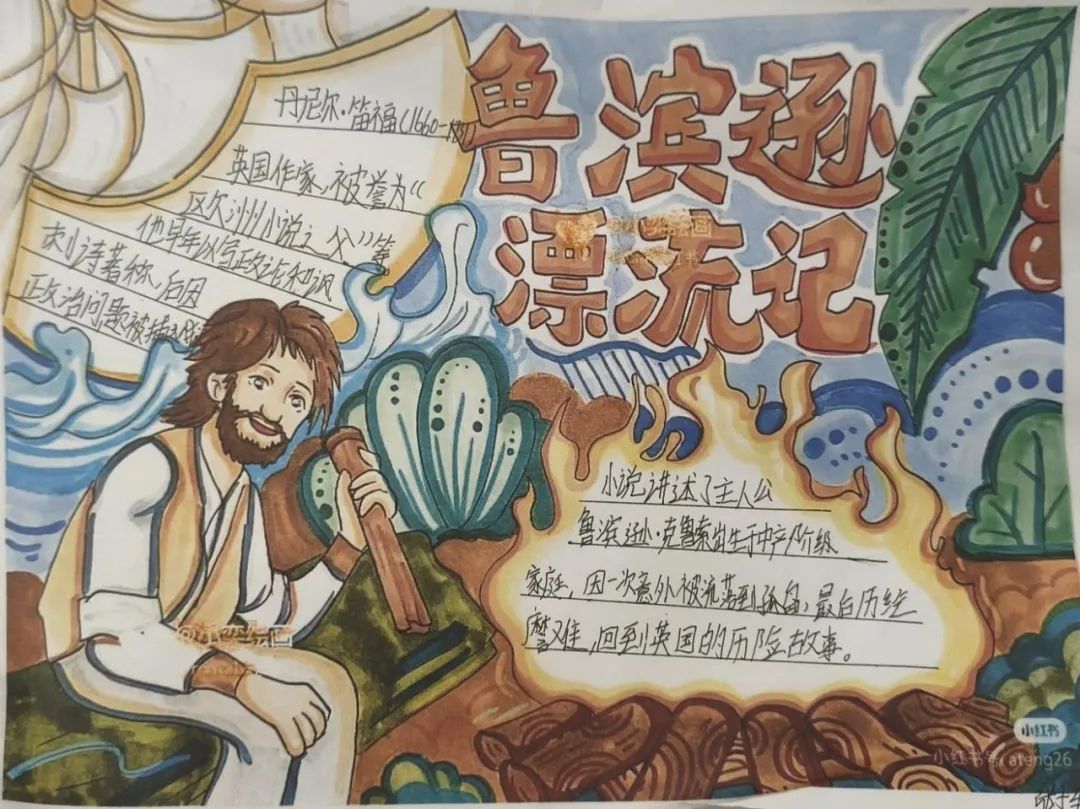 鲁滨逊
漂流记
丹尼尔·笛福(1660-
英国作家,被誉为“
区欠洲小说之父”等
他早年以写政论和讽
刺诗著称,后因
政治问题被捕
小说讲述了主人公
鲁滨逊·克鲁索出生于中产阶级
家庭,因一次意外被流落到孤岛,最后历经
磨难,回到英国的历险故事。
小红书
小红书号:ateng26